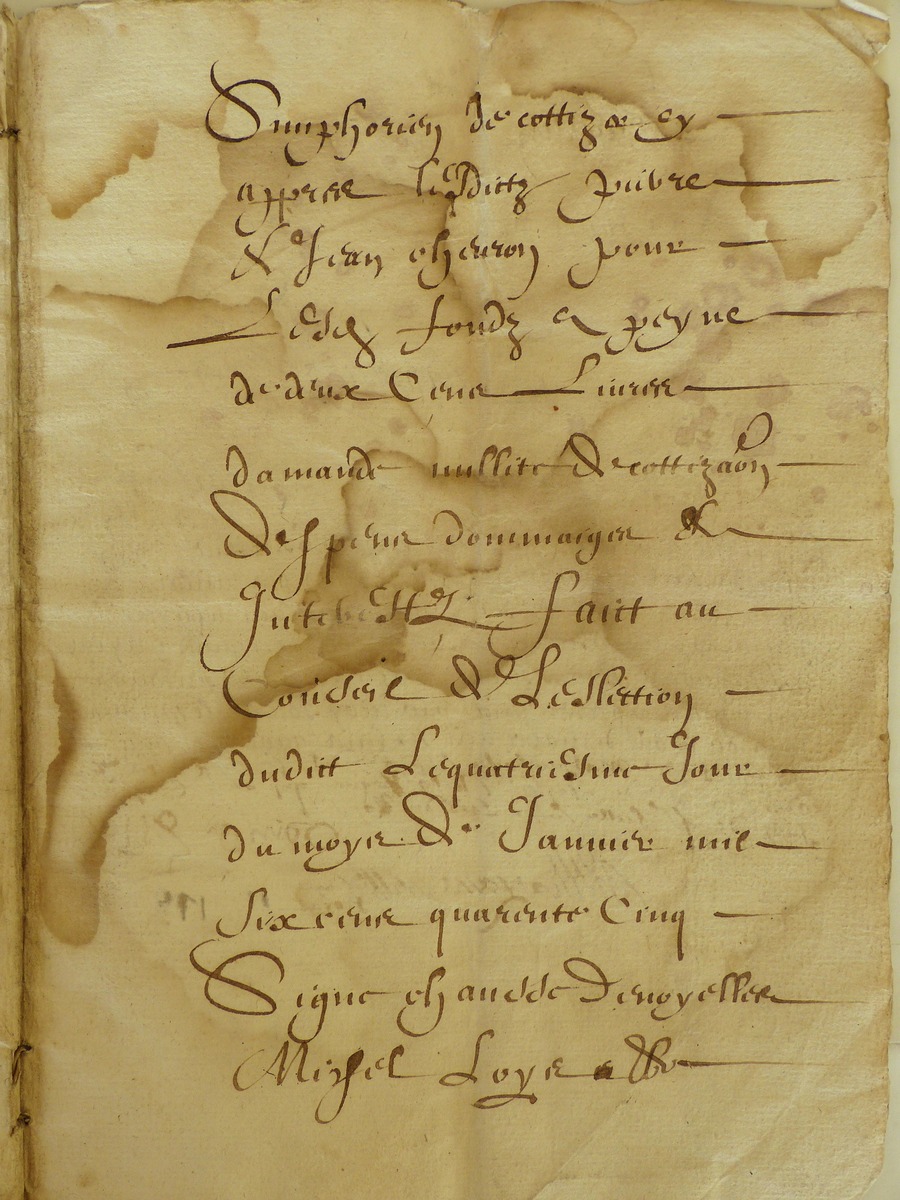 Simphorien de cottizer cy
appres lesdictz puivre
& Jean cherron pour
Lesd fondz a peyne
de deux Cens Livres
damande nullite de cottizaon
despens dommaiges &
Inthestz faict au
Conseil de Leslection
dudict Lequatriesme Jour
du moys de Januier mil
six cens quarente Cinq
Signe chausse Denoyelles
Michel Loys